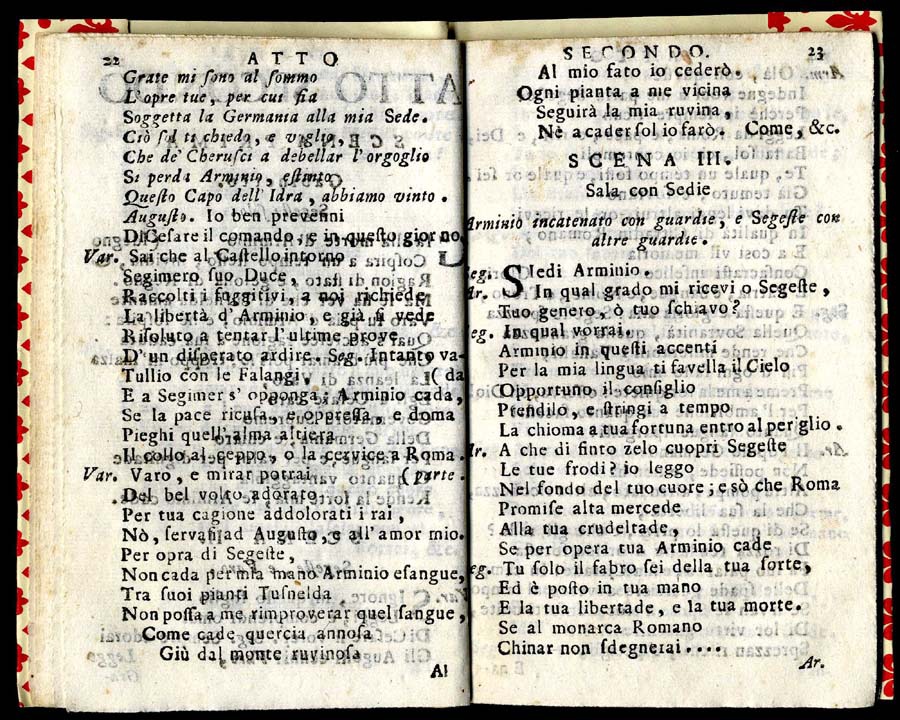 22 ATTO
Grate mi ſono al ſommo
L'opre tue, per cui fia
Soggetta la Germania alla mia Sede.
Ciò ſol ti chiedo, e voglio,
Che de' Cheruſci a debellar l'orgoglio
Si perda Arminio, eſtinto
Queſto Capo dell' Idra, abbiamo vinto.
Auguſto. Io ben prevenni
Di Ceſare il comando, e in queſto giorno.
Var. Sai che al Caſtello intorno
Segimero ſuo Duce,
Raccolti i fuggitivi, a noi richiede
La libertà d'Arminio, e già ſi vede
Riſoluto a tentar l'ultime prove
D'un diſperato ardire. Seg. Intanto va-
Tullio con le Falangi (da
E a Segimer s' opponga; Arminio cada,
Se la pace ricuſa, e oppreſſa, e doma
Pieghi quell' alma altiera
Il collo al ceppo, o la cervice a Roma.
Var. Varo, e mirar potrai (parte.
Del bel volto adorato
Per tua cagione addolorati i rai,
Nò, ſervaſi ad Auguſto, e all' amor mio.
Per opra di Segeſte,
Non cada per mia mano Arminio eſangue,
Tra ſuoi pianti Tuſnelda
Non poſſa a me rimproverar quel ſangue,
Come cade quercia annoſa
Giù dal monte ruvinoſa
Al
SECONDO. 23
Al mio fato io cederò.
Ogni pianta a me vicina
Seguirà la mia ruvina,
Nè a cader ſol io farò. Come, &c.
SCENA III.
Sala con Sedie
Arminio incatenato con guardie, e Segeſte con
altre guardie.
Seg. Siedi Arminio.
Ar. In qual grado mi ricevi o Segeſte,
Tuo genero, ò tuo ſchiavo?
Seg. In qual vorrai.
Arminio in queſti accenti
Per la mia lingua ti favella il Cielo
Opportuno il conſiglio
Prendilo, e ſtringi a tempo
La chioma a tua fortuna entro al periglio.
Ar. A che di finto zelo cuopri Segeſte
Le tue frodi? io leggo
Nel fondo del tuo cuore; e sò che Roma
Promiſe alta mercede
Alla tua crudeltade,
Se per opera tua Arminio cade
Seg. Tu ſolo il fabro ſei della tua ſorte,
Ed è poſto in tua mano
E la tua libertade, e la tua morte.
Se al monarca Romano
Chinar non ſdegnerai....
Ar.